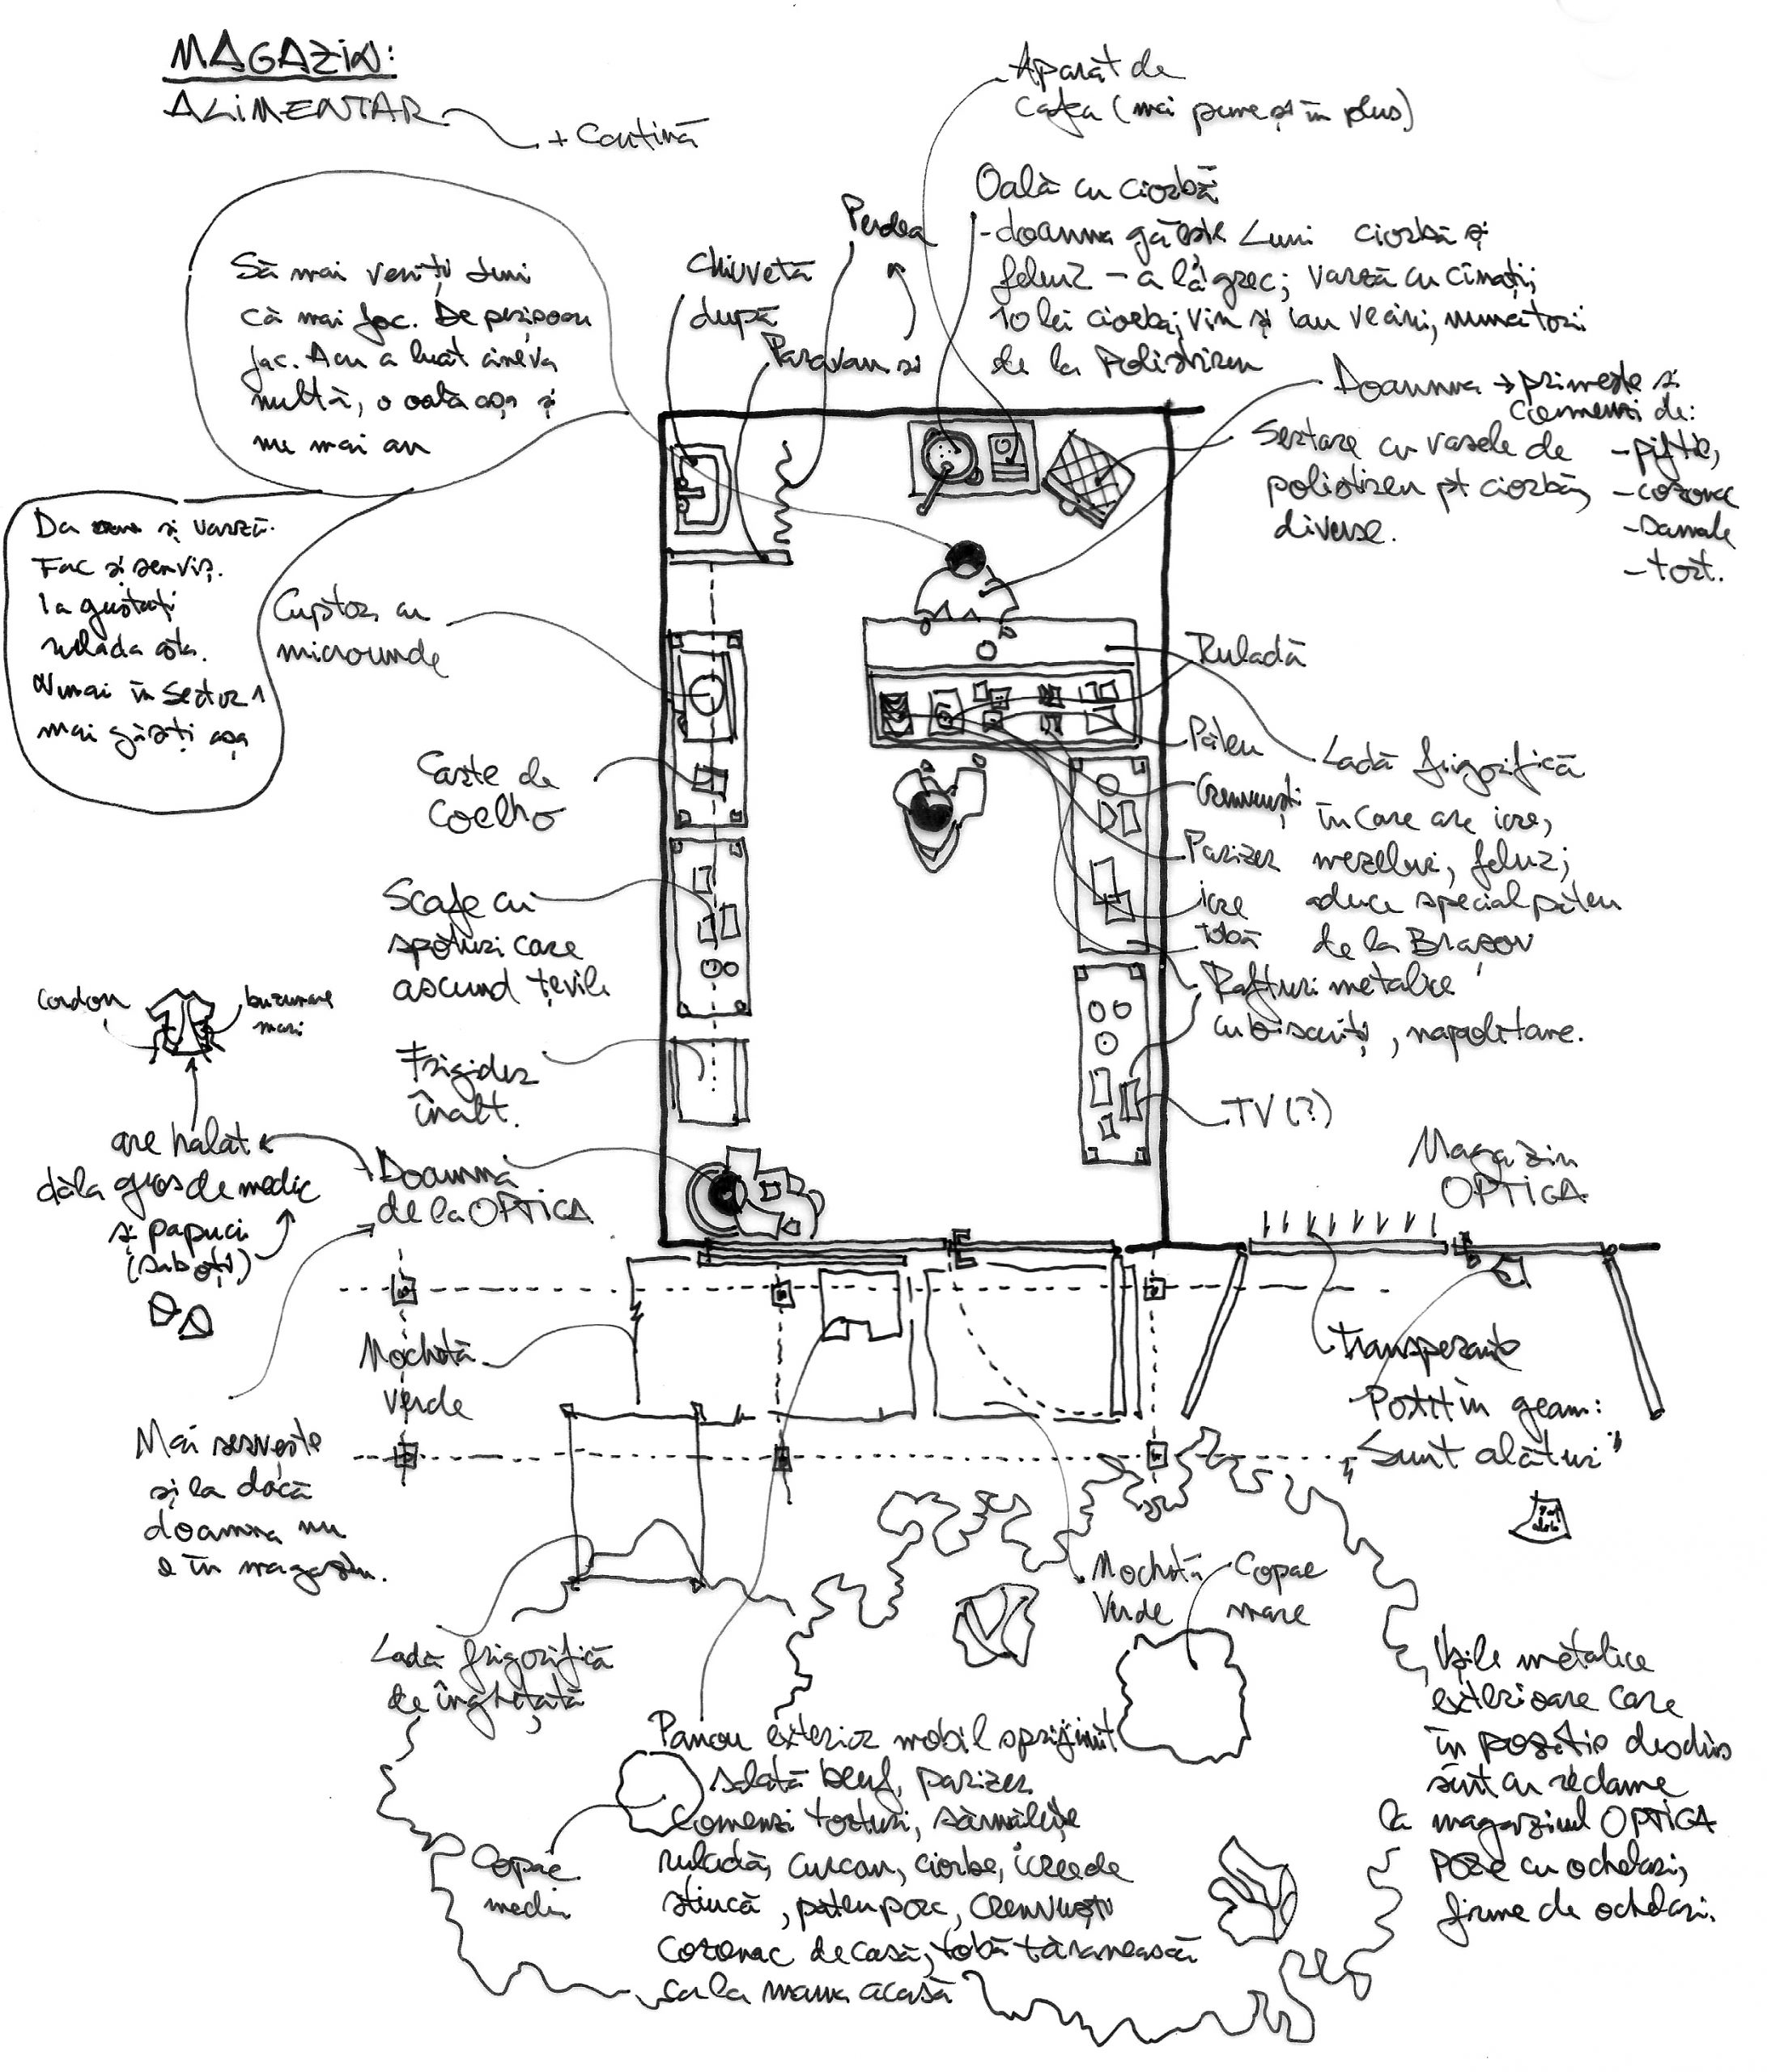 MAGAZIN:
ALIMENTAR
+ Cantină
Aparat de
cafea (mai pune și în plus)
Oală cu ciorbă
- doamna gătește Luni ciorbă și
felul 2 - a la grec; varză cu cîrnați;
10 lei ciorba; vin și iau vecini, muncitori
de la Polistiren
Perdea
Chiuvetă
după
Paravan și
Să mai veniți luni
că mai fac. De perișoare
fac. Acu a luat cineva
multă, o oală așa și
nu mai am
Da și varză.
Fac și serviș.
Ia gustați
rulada asta.
Numai în Sector 1
mai găsiți așa
Doamna → primește și
comenzi de:
- piftie,
- cozonac
- Sarmale
- tort.
Sertare cu vasele de
polistiren pt ciorbă,
diverse.
Cuptor cu
microunde
Carte de
Coelho
Scafe cu
spoturi care
ascund țevile
Frigider
înalt.
Doamna
de la OPTICA
are halat
dăla gros de medic
și papuci
(saboți)
Cordon
buzunare
mari
Mai servește
și la dacă
doamna nu
e în magazin.
Ruladă
Pateu
Crenvurști
Parizer
icre
tobă
Ladă frigorifică
în care are icre,
mezeluri, felul 2;
aduce special pateu
de la Brașov
Rafturi metalice
cu biscuiți, napolitane.
TV (?)
Magazin
OPTICA
Transparante
Postit în geam:
"Sunt alături"
Mochetă
verde
Mochetă
Verde
Copac
mare
Ladă frigorifică
de înghețată
Copac
mediu
Panou exterior mobil sprijinit
salată beuf, parizer
Comenzi torturi, sărmăluțe
ruladă, curcan, ciorbe, icre de
știucă, pateu porc, crenvurști
cozonac de casă, tobă țărănească
ca la mama acasă
Ușile metalice
exterioare care
în poziție deschis
sînt cu reclame
la magazinul OPTICA
poze cu ochelari,
firme de ochelari.